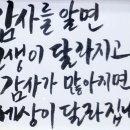 감사를 알면
생이 달라지고
감사가 많아지면
세상이 달라집니